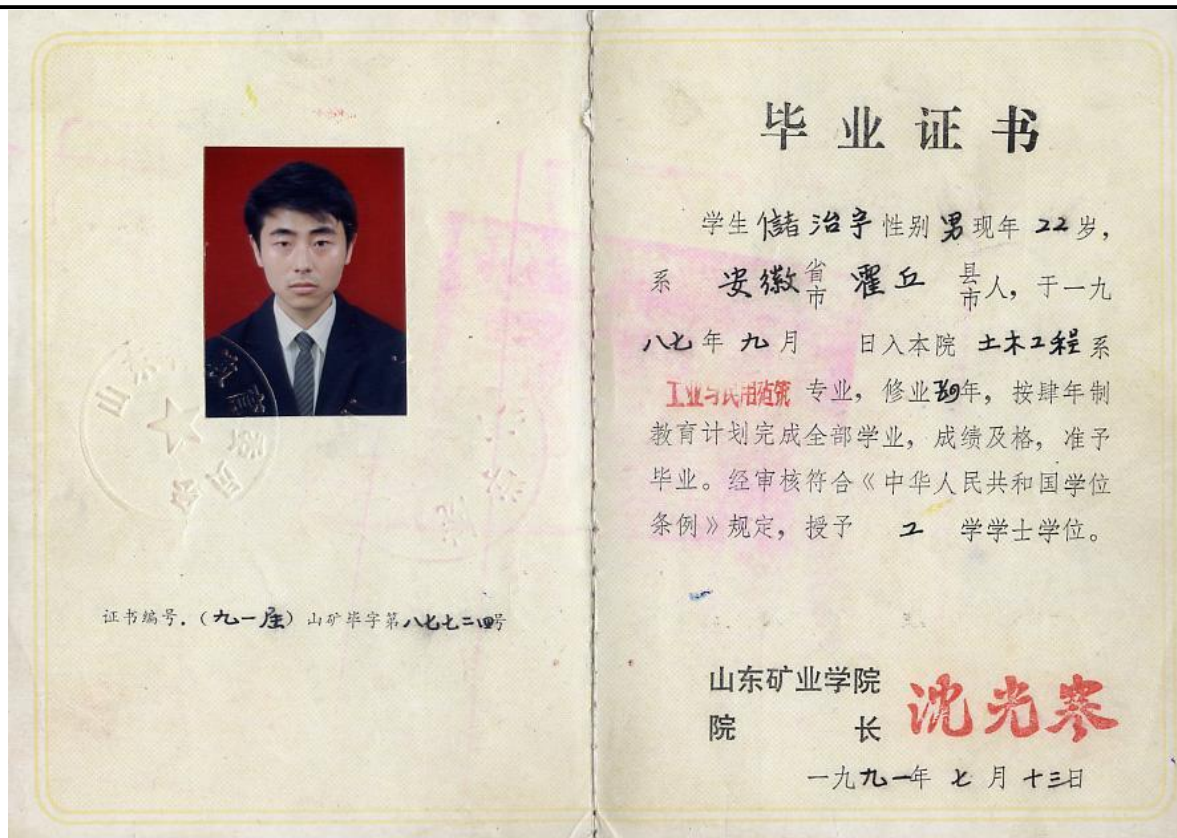 证书编号.（九一届）山矿毕字第八七七二四号
毕业证书
学生儲治宇性别男现年22岁，
系 安徽省市 霍丘 县市人，于一九
八七年九月 日入本院 土木工程系
工业与民用建筑 专业，修业四年，按肆年制
教育计划完成全部学业，成绩及格，准予
毕业。经审核符合《中华人民共和国学位
条例》规定，授予 工 学学士学位。
山东矿业学院
院 长 沈光寒
一九九一年七月十三日